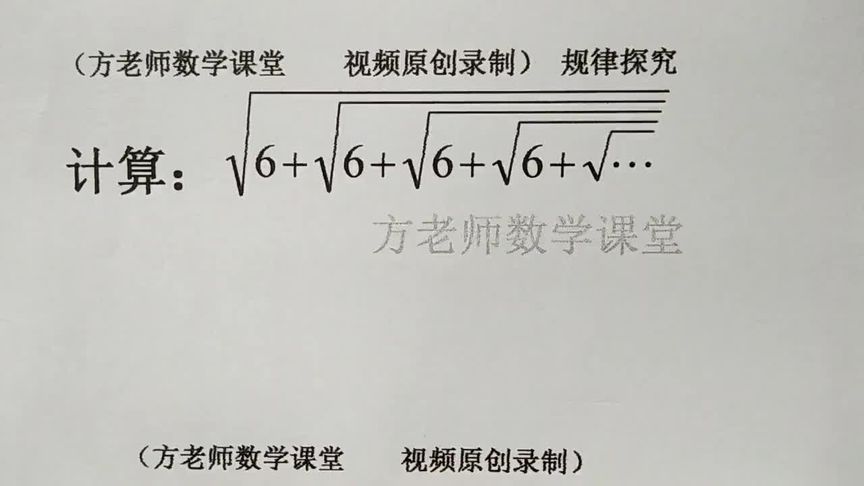 （方老师数学课堂 视频原创录制） 规律探究
计算：√6+√6+√6+√6+√…
方老师数学课堂
（方老师数学课堂 视频原创录制）